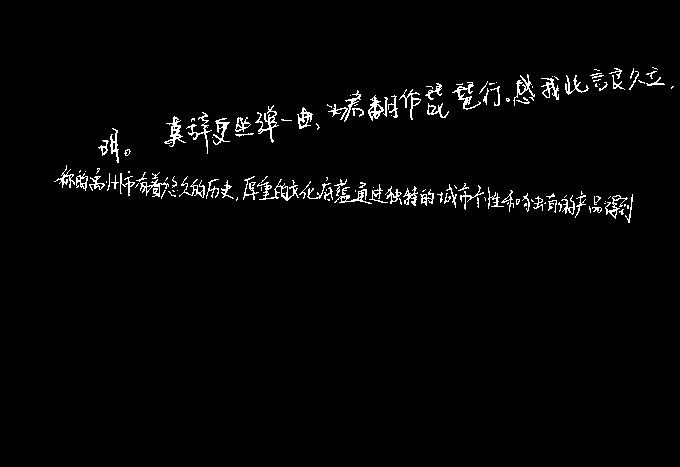 明。莫辞更坐弹一曲、为君翻作琵琶行。感我此言良久立,
称的高州市有着悠久的历史,厚重的文化底蕴通过独特的城市个性和独有的产品得到